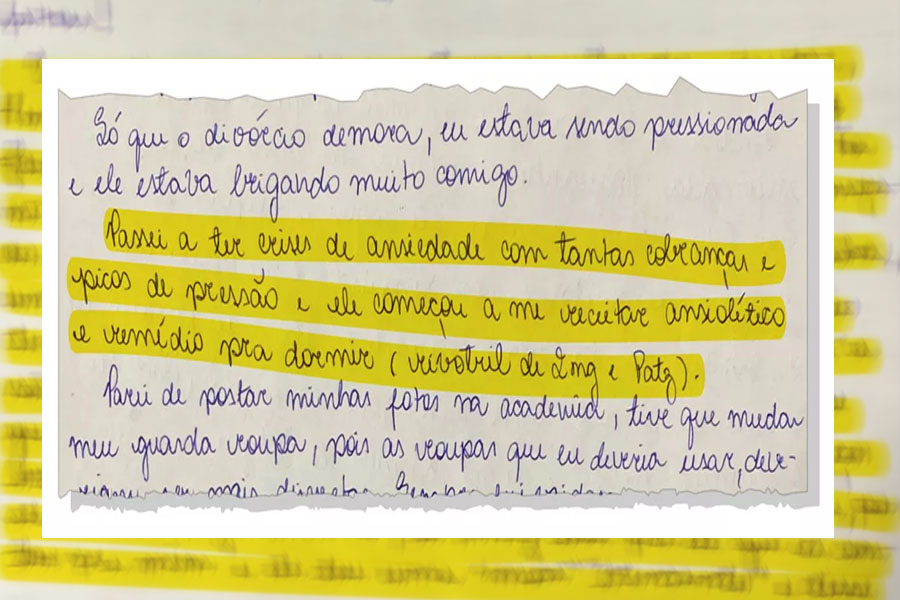 Só que o divórcio demora, eu estava sendo pressionada
e ele estava brigando muito comigo.
Passei a ter crises de ansiedade com tantas cobranças e
picos de pressão e ele começou a me receitar ansiolítico
e remédio pra dormir (rivotril de 2mg e Patz).
Parei de postar minhas fotos na academia, tive que mudar
meu guarda roupa, pois as roupas que eu deveria usar, deve-
mais